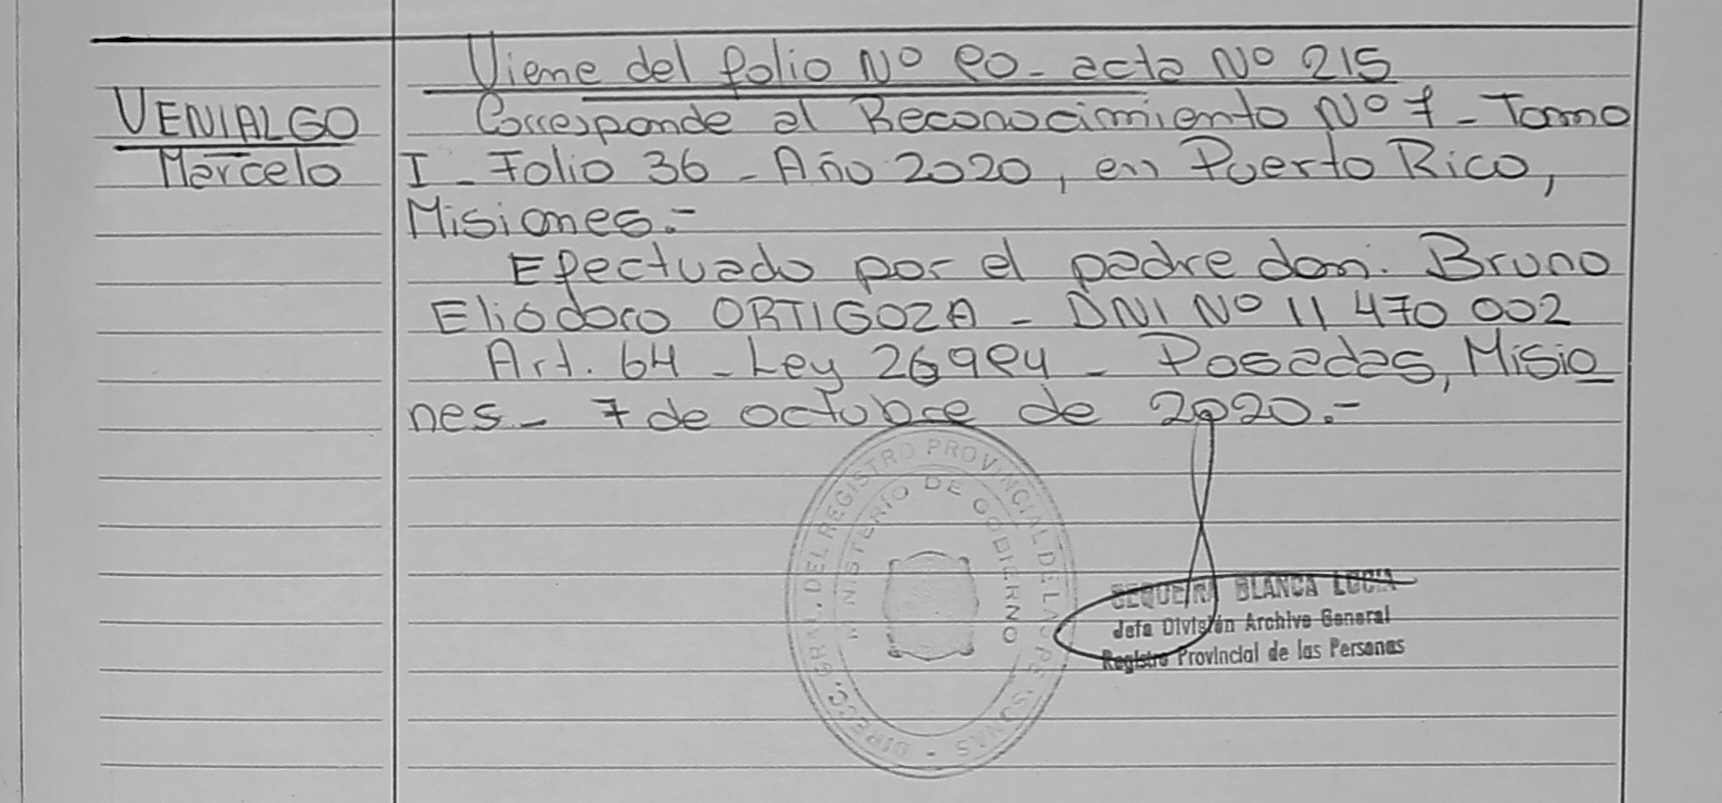 Viene del folio Nº 80 - acta Nº 215
VENIALGO
Marcelo
Corresponde al Reconocimiento Nº 7 - Tomo
I - Folio 36 - Año 2020, en Puerto Rico,
Misiones.-
Efectuado por el padre don. Bruno
Eliodoro ORTIGOZA - DNI Nº 11 470 002
Art. 64 - Ley 26984 - Posadas, Misio
nes - 7 de octubre de 2020.-
DIRECC. GRAL. DEL REGISTRO PROVINCIAL DE LAS PERSONAS -
MINISTERIO DE GOBIERNO
SEQUEIRA BLANCA LUCIA
Jefa División Archivo General
Registro Provincial de las Personas